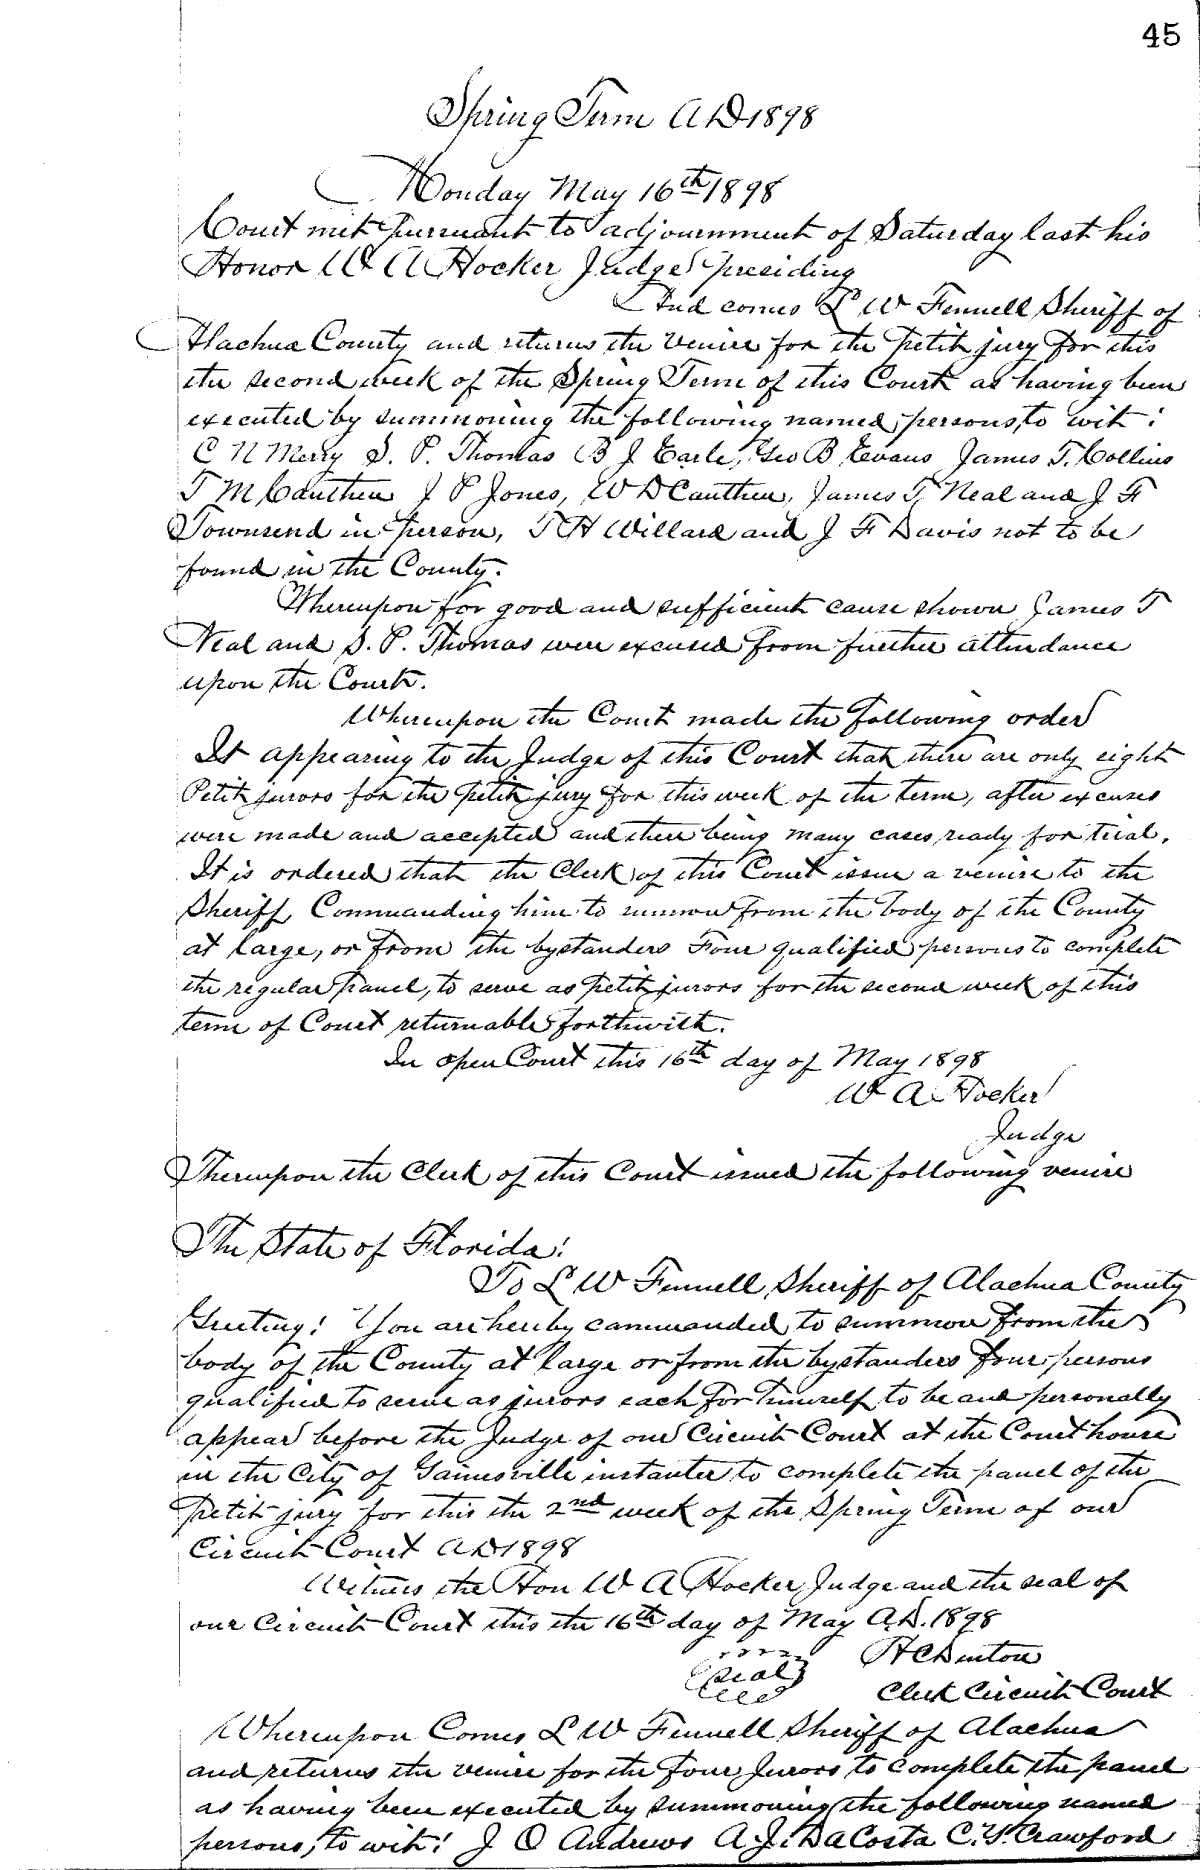 45
Spring Term A D 1898
Monday May 16th 1898
Court met pursuant to adjournment of Saturday last his
Honor W A Hocker Judge presiding
And comes L W Fennell Sheriff of
Alachua County and returns the venire for the petit jury for this
the second week of the Spring Term of this Court as having been
executed by summoning the following named persons, to wit:
C N Merry S. P. Thomas B J Earle, Geo B Evans James T. Collins
T M Cauthen J P Jones, W D Cauthen, James T. Neal and J F
Townsend in person, T H Willard and J F Davis not to be
found in the County.
Whereupon for good and sufficient cause shown James T
Neal and S. P. Thomas were excused from further attendance
upon the Court.
Whereupon the Court made the following order
It appearing to the Judge of this Court that there are only eight
Petit jurors for the petit jury for this week of the term, after excuses
were made and accepted and there being many cases ready for trial.
It is ordered that the Clerk of this Court issue a venire to the
Sheriff Commanding him to summon from the body of the County
at large, or from the bystanders Four qualified persons to complete
the regular panel, to serve as petit jurors for the second week of this
term of Court returnable forthwith.
In open Court this 16th day of May 1898
W A Hocker
Judge
Thereupon the Clerk of this Court issued the following venire
The State of Florida:
To L W Fennell Sheriff of Alachua County
Greeting: You are hereby commanded to summon from the
body of the County at large or from the bystanders four persons
qualified to serve as jurors each for himself to be and personally
appear before the Judge of our Circuit Court at the Court house
in the City of Gainesville instanter to complete the panel of the
petit jury for this the 2nd week of the Spring Term of our
Circuit Court A D 1898
Witness the Hon W A Hocker Judge and the seal of
our Circuit Court this the 16th day of May A.D. 1898
(seal) H C Denton
Clerk Circuit Court
Whereupon Comes L W Fennell Sheriff of Alachua
and returns the venire for the four Jurors to complete the panel
as having been executed by summoning the following named
persons, to wit: J O Andrews A. J. DaCosta C. Y. Crawford